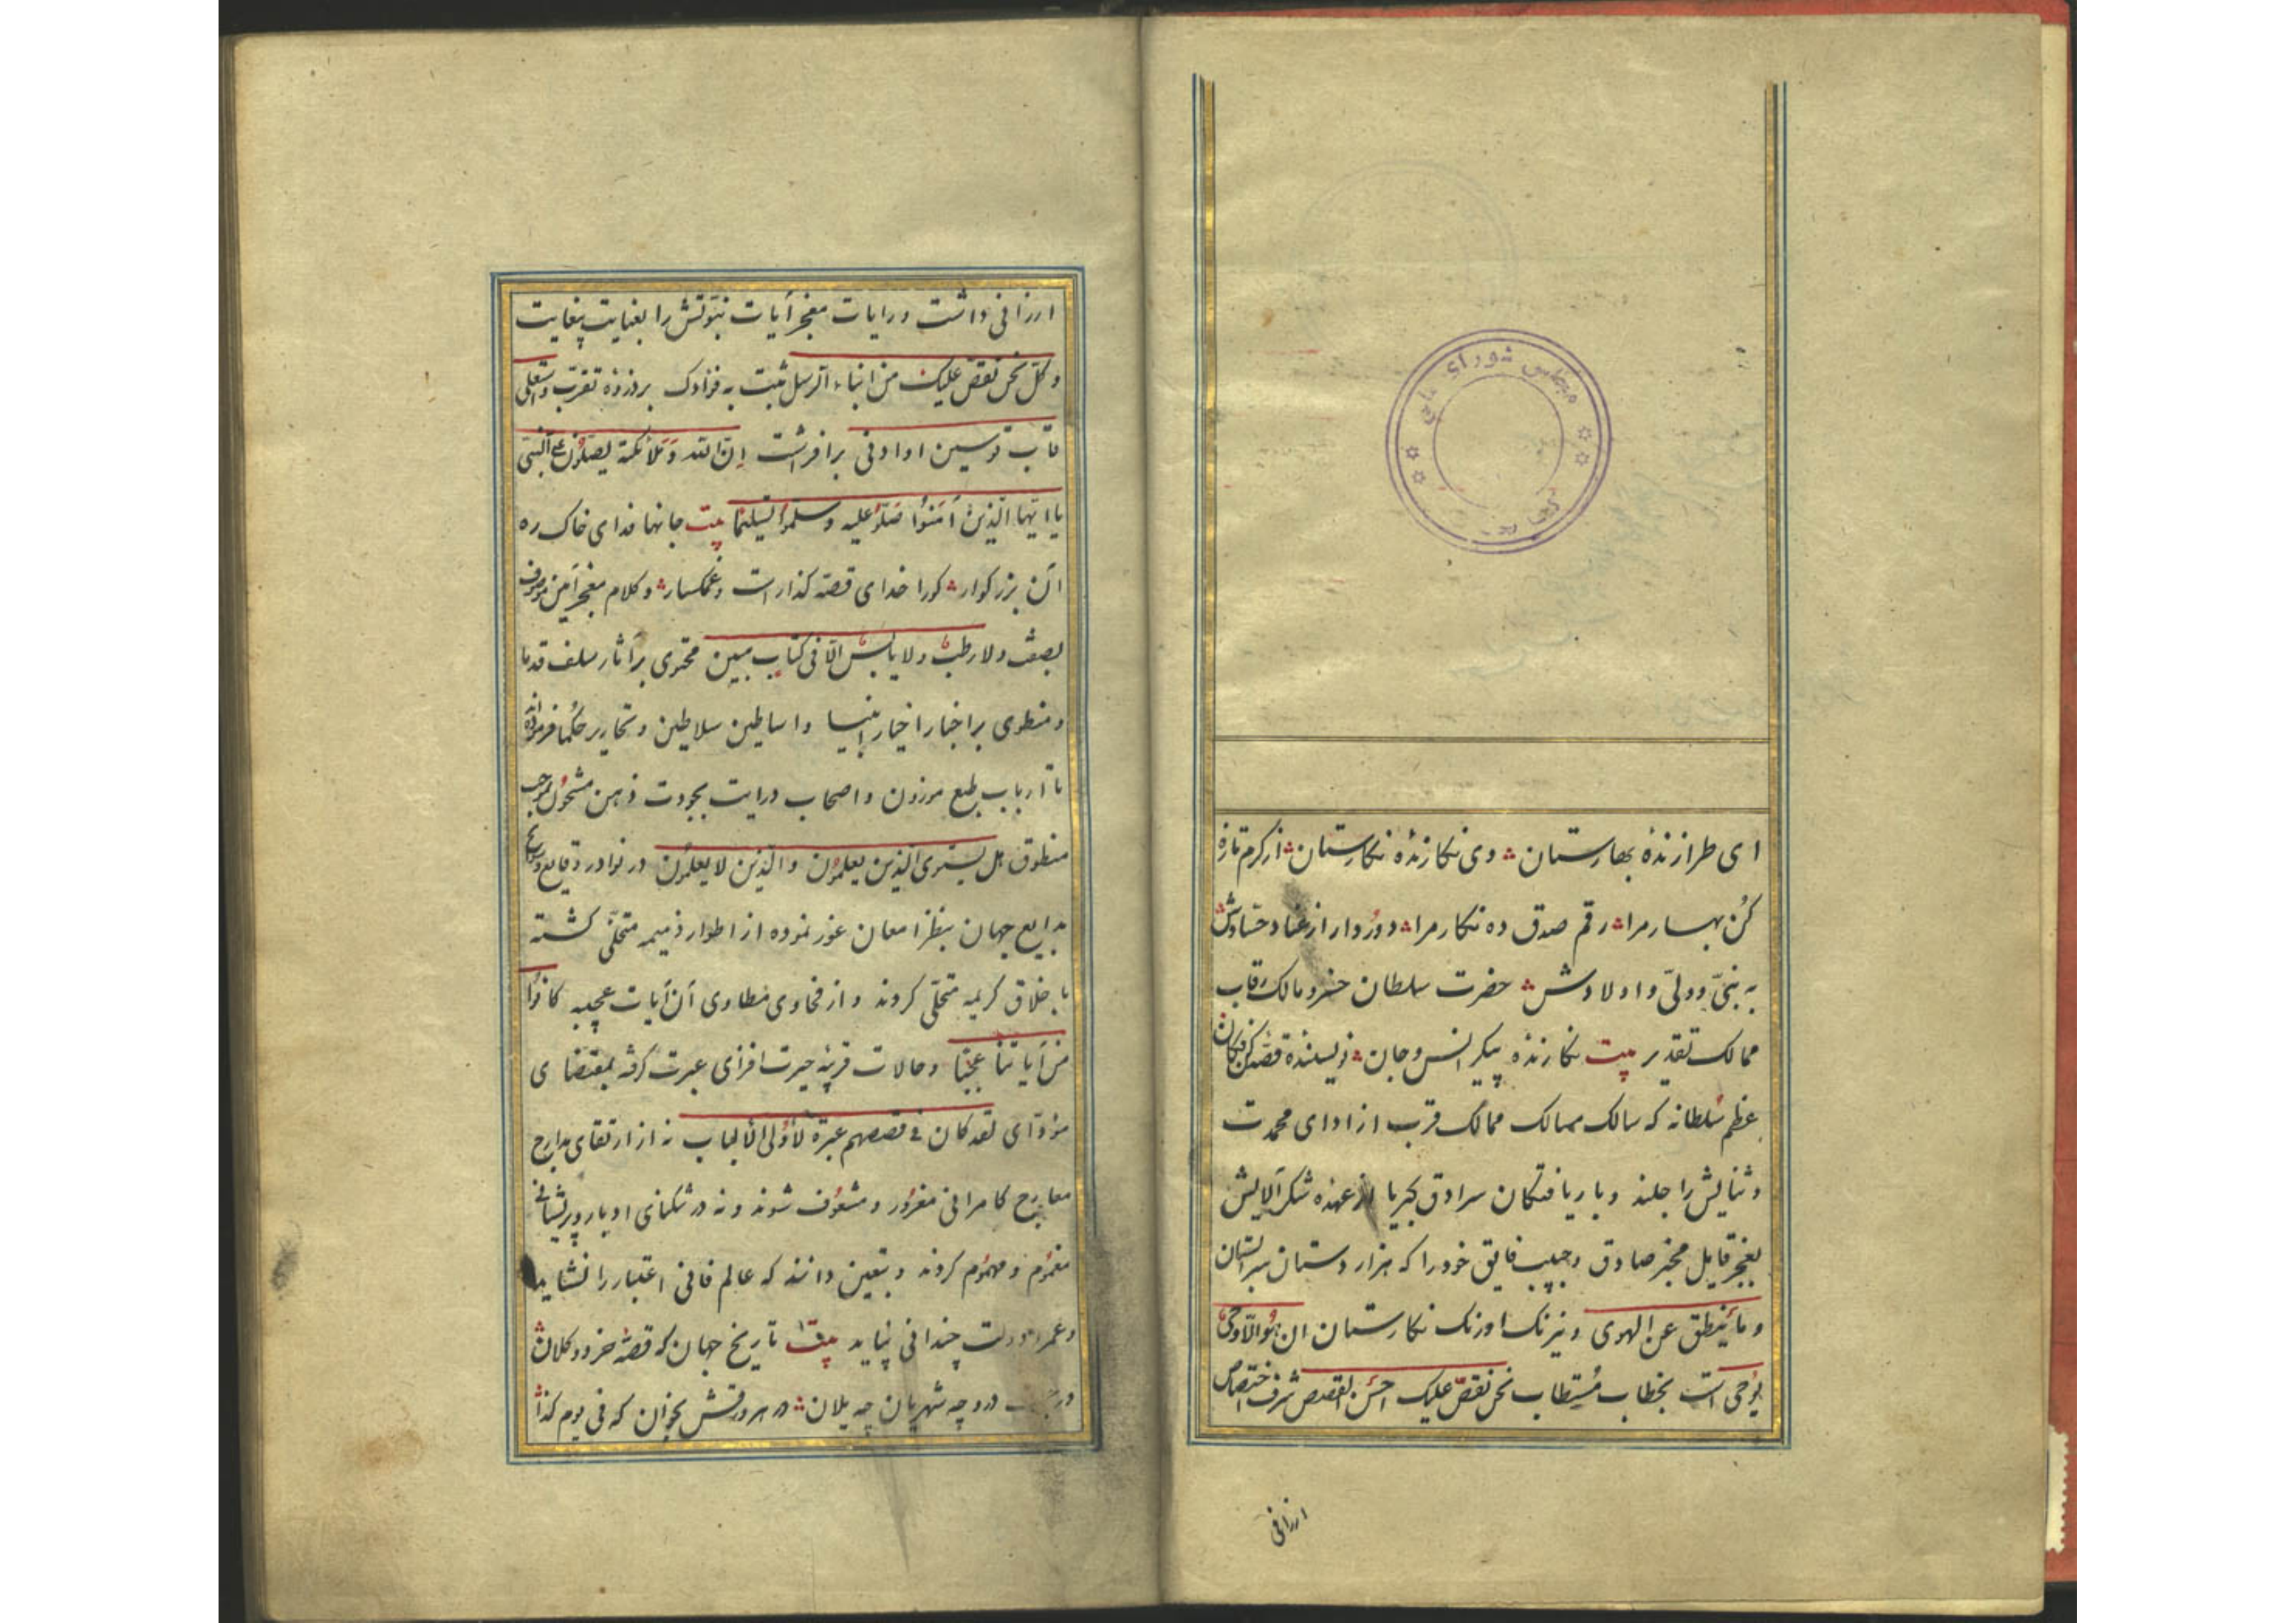 مجلس شورای ملی
ای طرازندهٔ بهارستان ؞ وی نکارندهٔ نکارستان ؞ از کرم تازه
کُن بهار مرا ؞ رقم صدق ده نکار مرا ؞ دوُر دار از عناد حسّادش
به نبیّ و ولیّ و اولادش ؞ حضرت سلطان خسرو مالک رقاب
ممالک تقدیر بیت نکارندهٔ پیکر انس و جان ؞ نویسندهٔ قصّهٔ کن فکان
عظم سُلطانه که سالک مسالک ممالک قرب از ادای محمدت
و ثنایش راجلند و باریافتکان سرادق کبریا از عهده شکر آلایش
بعجز قایل مخبر صادق و حبیب فایق خود را که هزار دستان سرابستان
و ما یَنطق عن الهوی و نیرنک اورنک نکارستان ان هُو الّا وحی
یُوحی است بخطاب مُستطاب نحن نقصّ علیک احسَن القصص شرف اختصاص
ارزانی
ارزانی داشت و رایات معجز آیات نبوّتش را بغایت بیغایت
و کلّ نحن نقصّ علیک من انباء الرسل نثبت به فؤادک بر ذروهٔ تقرّب و استعلی
قاب قوسین او ادنی برافراشت اِنّ الله وَ مَلآئکته یصلّون علی النّبیّ
یا ایّها الّذینَ آمَنُوا صَلّوُا علیه و سلّموُا تسلیمًا بیت جانها فدای خاک ره
آن بزرکوار ؞ کورا خدای قصّه کذار است و غمکسار ؞ و کلام معجز آیین موصوف
بصفت و لا رطب و لا یابس الّا فی کتاب مبین محتوی بر آثار سلف قدما
و منطوی بر اخبار اخیار انبیا و اساطین سلاطین و تحاریر حکُما فرموده
تا ارباب طبع موزون و اصحاب درایت بجودت ذهن مشحُون بموجب
منطوق هل یستوی الّذین یعلموُن و الّذین لا یعلموُن در نوادر وقایع و
بدایع جهان بنظر امعان غور نموده از اطوار ذمیمه متخلّی کشته
باخلاق کریمه متحلّی کردند و از فحاوی مطاوی آن آیات عجیبه کانوُا
مِن آیاتنا عجبًا و حالات غریبهٔ حیرت افزای عبرت کرفته بمقتضای
مؤدّای لقد کان فی قصصهم عبرة لأوُلی الألباب نه از ارتقای مدارج
معارج کامرانی مغروُر و مشعوُف شوند و نه در تنکنای ادبار و پریشانی
مغموُم و مهموُم کردند و یقین دانند که عالم فانی اعتبار را نشاید
و عمر و دولت چندانی نپاید بیت تاریخ جهان که قصّهٔ خرد و کلان ؞
درو چه شهریان چه یلان ؞ در هر ورقش بخوان که فی یوم کذا ؞